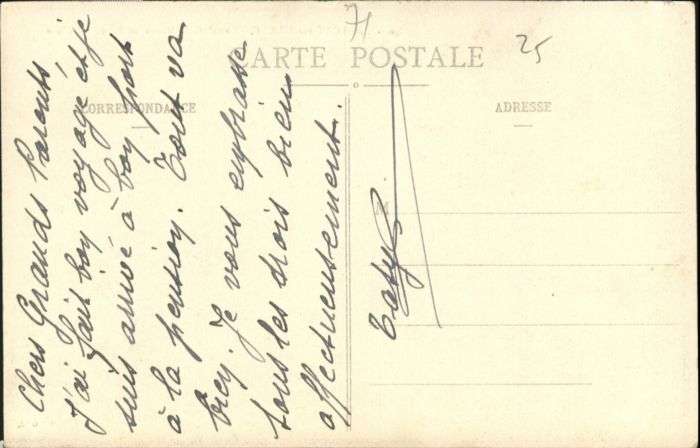 71
25
CARTE POSTALE
CORRESPONDANCE
ADRESSE
Chers Grands Parents
J'ai fait bon voyage et je
suis arrivé à bon port
à la pension. Tout va
bien. Je vous embrasse
tous les trois bien
affectueusement.